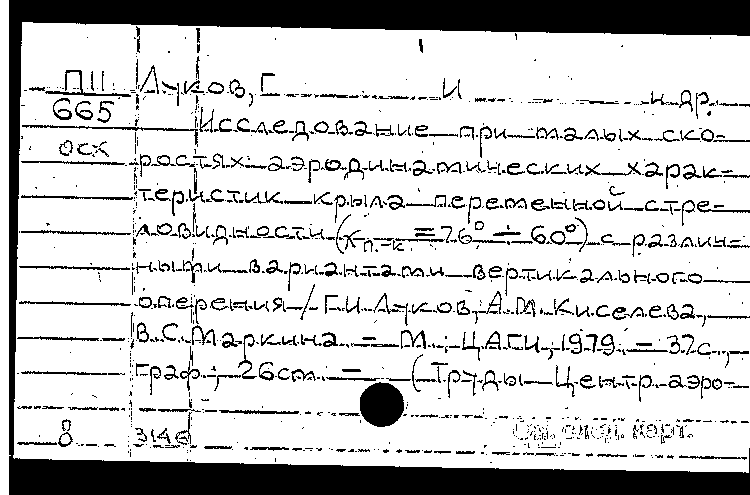 ПII Луков, Г И и др.
665
Исследование при малых ско-
осх
ростях аэродинамических харак-
теристик крыла переменной стре-
ловидности (χп.-к. = 76° ÷ 60°) с различ-
ными вариантами вертикального
оперения / Г.И. Луков, А.М. Киселева,
В.С. Маркина. – М.: ЦАГИ, 1979. – 37с.,
граф.; 26cm. – (Труды Центр. аэро-
8 3146